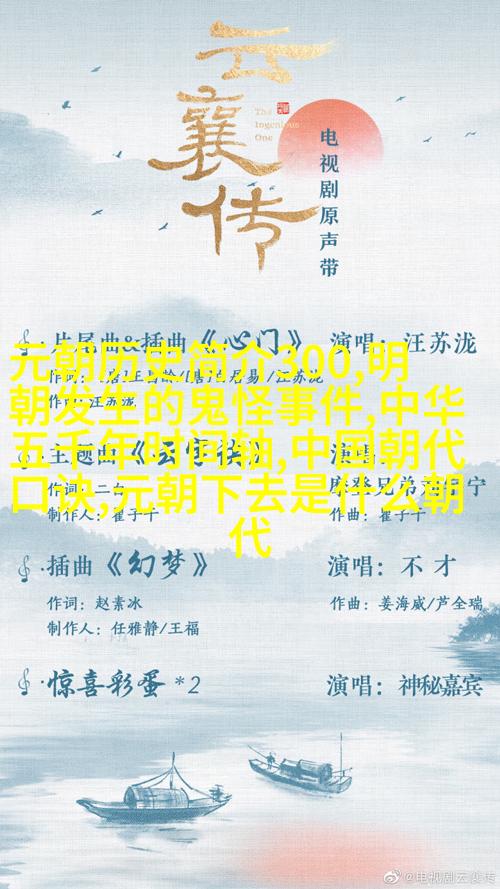 云襄传
The
Ingenious
One
电视剧原声带
片尾曲&插曲《心门》 演唱：汪苏泷
元朝历史简介300,明
朝发生的鬼怪事件,中华
五千年时间轴,中国朝代
口诀,元朝下去是什么朝
代
作曲：汪苏泷
主题曲《云
作词：二白
制作人：崔子千
作曲：崔子千
插曲《幻梦》 演唱：不才
作词：赵素冰 作曲：姜海威/芦全瑞
制作人：任雅静/王福
惊喜彩蛋 *2 演唱：神秘嘉宾
@电视剧云襄传